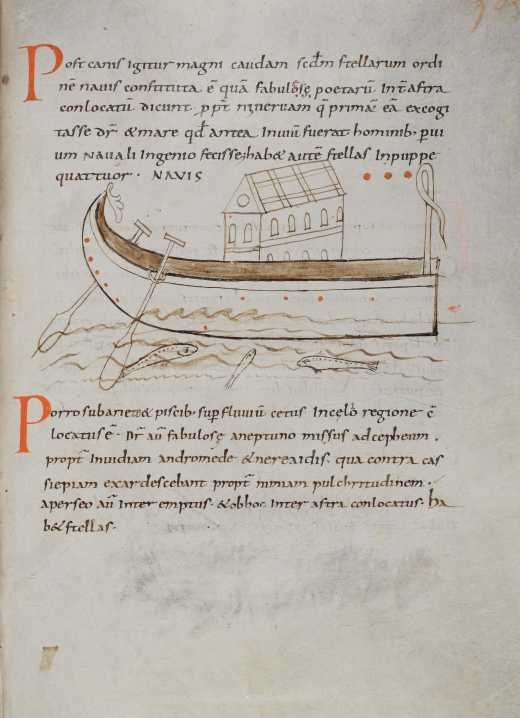 Post canis igitur magni caudam scdm stellarum ordi
nē navis constituta ē quā fabulose poetarū Int astra
conlocatū dicunt ppt minervam q primā eā excogi
tasse dr & mare qđ antea Invium fuerat hominib pvi
um navali Ingenio fecisse hab& autē stellas Inpuppe
quattuor · NAVIS
Porro sub ariete & piscib sup fluviū cetus Incęlo regione ē
locatus ē · Dr aū fabulose aneptuno missus ad cepheum ·
propt Invidiam andromede & nereaidis · qua contra cas
siepiam exardescebant propt nimiam pulchritudinem ·
aperseo aū Inter emptus · & obhoc Inter astra conlocatus · ha
b& stellas ·